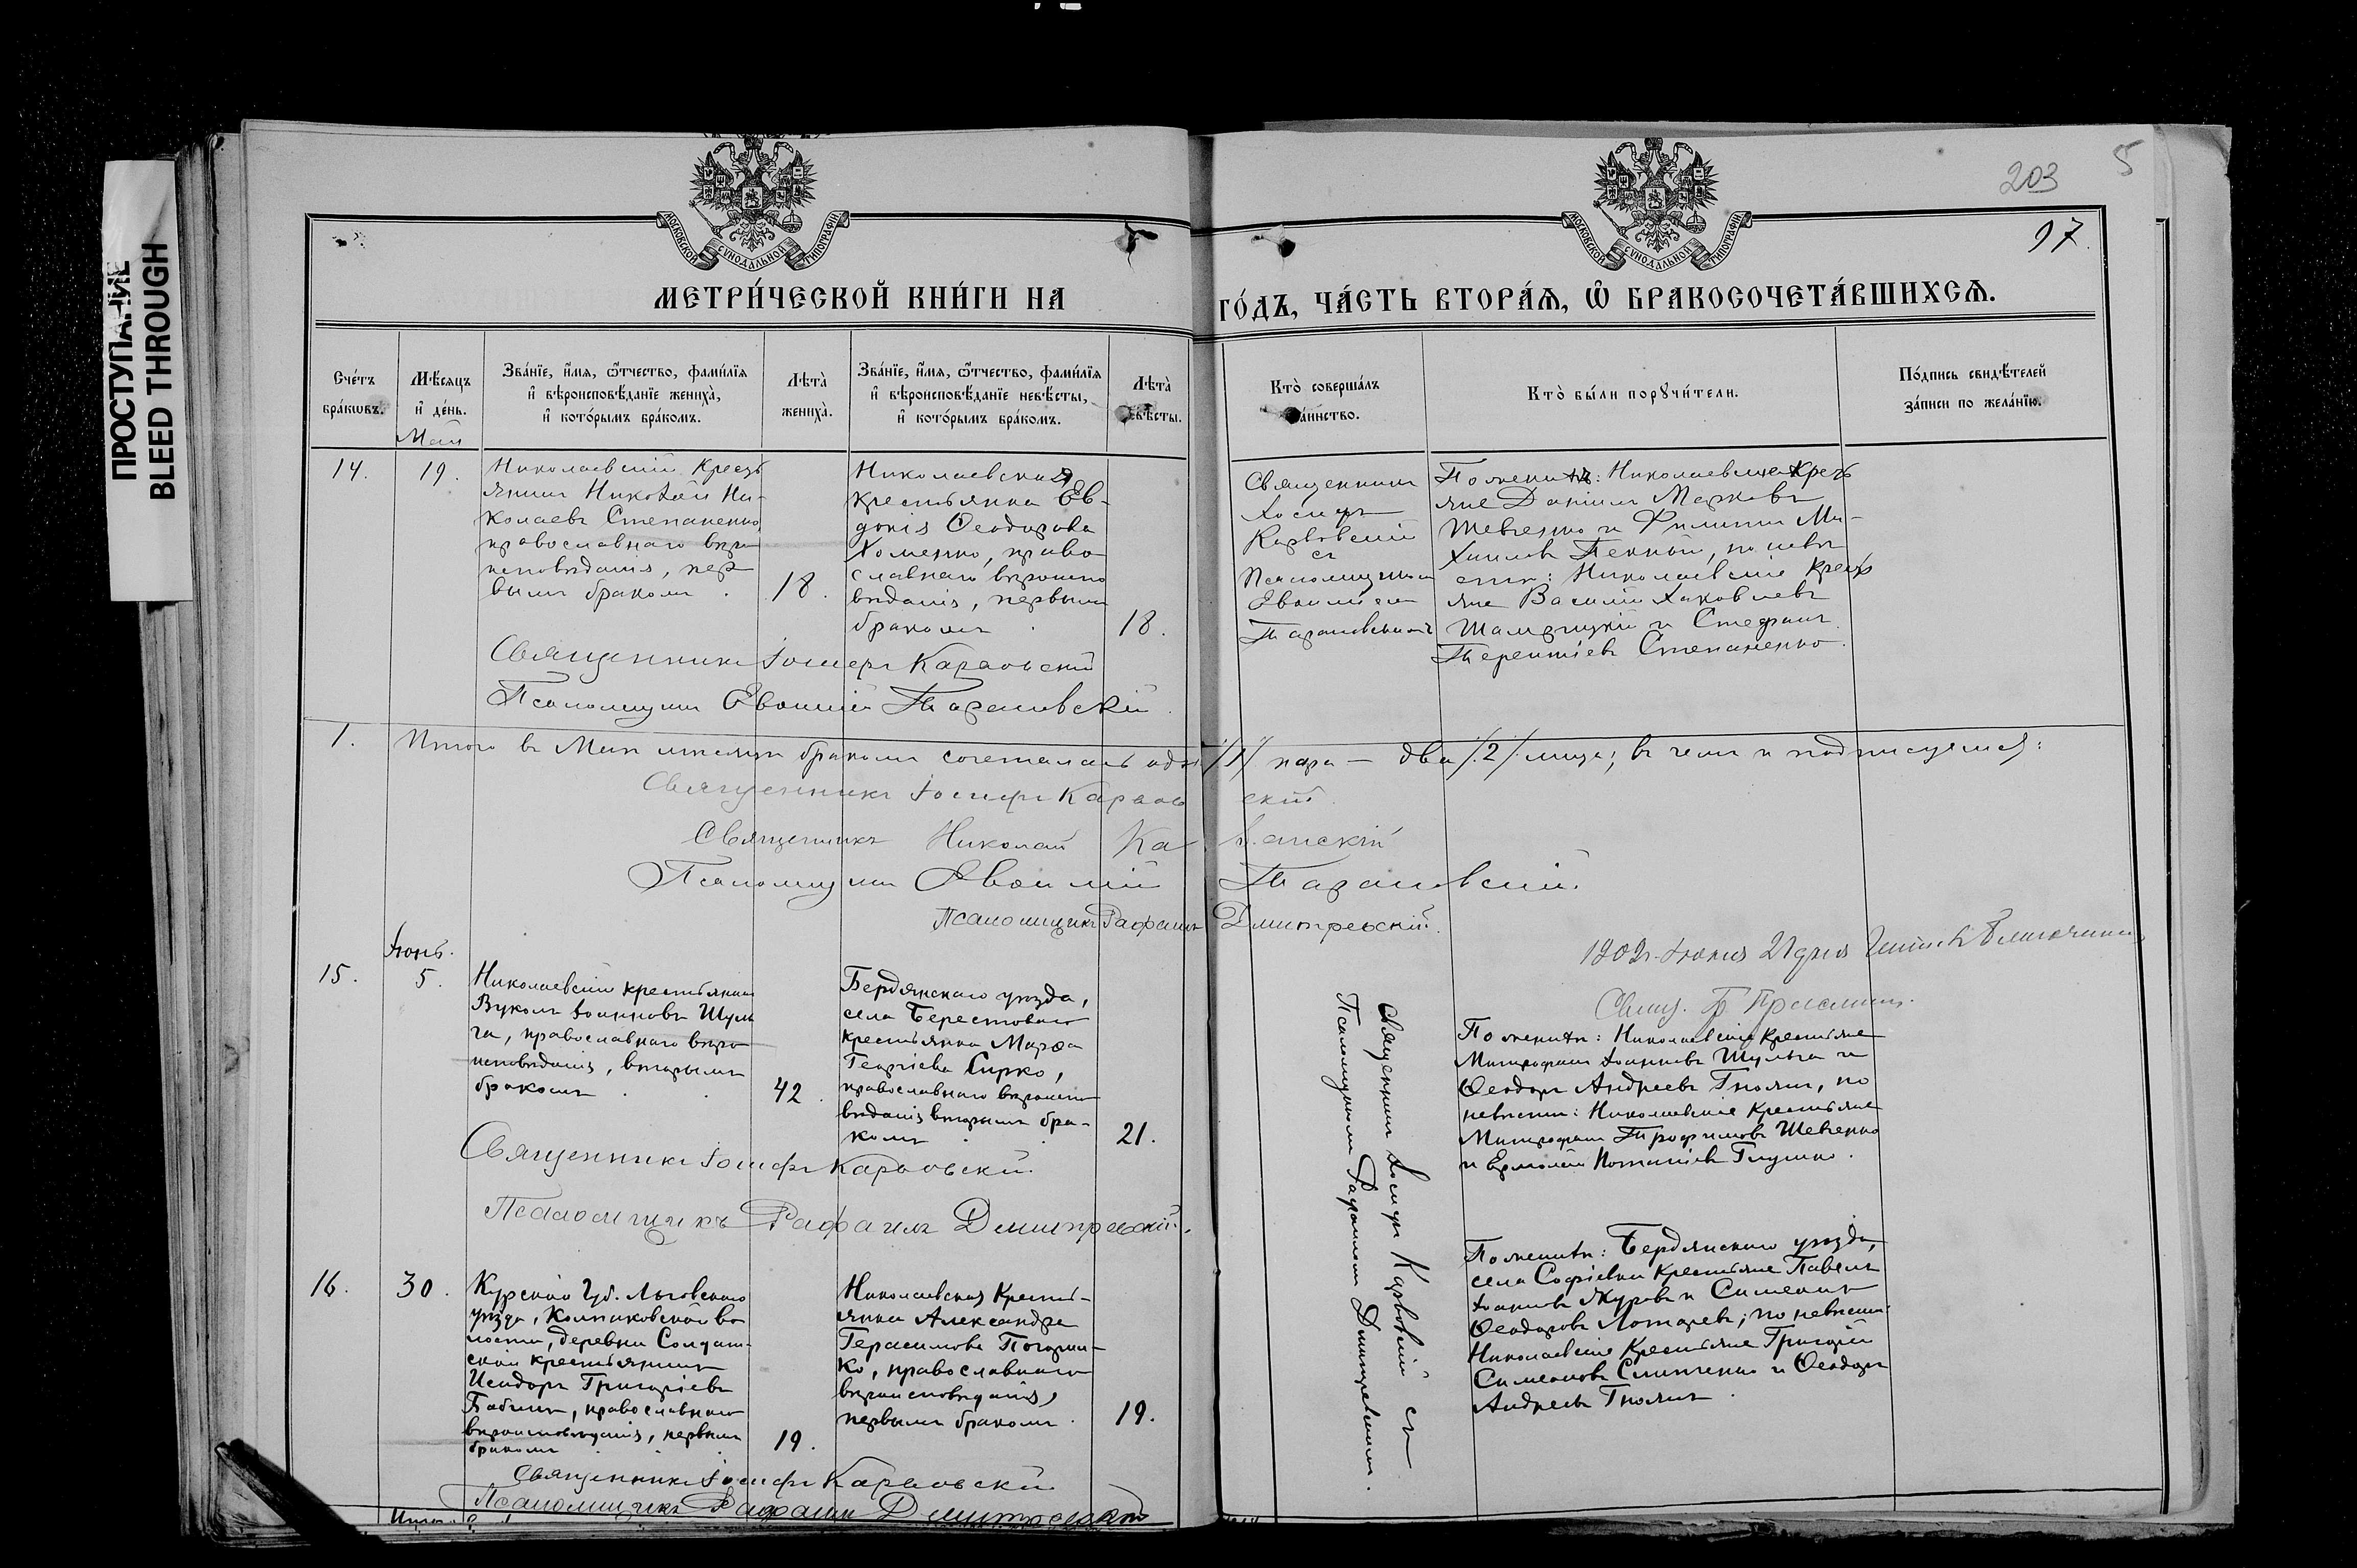 ПРОСТУПАНИЕ
BLEED THROUGH
203
5
17.
МОСКОВСКОЙ СѴНОДАЛЬНОЙ ТИПОГРАФІИ
МОСКОВСКОЙ СѴНОДАЛЬНОЙ ТИПОГРАФІИ
МЕТРИ́ЧЕСКОЙ КНИ́ГИ НА
ГО́ДЪ, ЧА́СТЬ ВТОРА́Ѧ, Ѽ БРАКОСОЧЕТА́ВШИХСѦ.
Сче́тъ
бра́кѡвъ.
Мѣ́сяцъ
и҆ де́нь.
Зва́нїе, и҆́мя, ѻ҆́тчество, фами́лїя
и҆ вѣроисповѣ́данїе жениха̀,
и҆ кото́рымъ бра́комъ.
Лѣта̀
жениха̀.
Зва́нїе, и҆́мя, ѻ҆́тчество, фами́лїя
и҆ вѣроисповѣ́данїе невѣ́сты,
и҆ кото́рымъ бра́комъ.
Лѣта̀
невѣ́сты.
Кто̀ соверша́лъ
та́инство.
Кто̀ бы́ли порꙋчи́тели.
По́дпись свидѣ́телей
за́писи по жела́нїю.
Май
14.
19.
Николаевскій кресть
янинъ Николай Ни-
колаевъ Степаненко,
православнаго вѣро
исповѣданія, пер
вымъ бракомъ.
18.
Николаевская
крестьянка Ев-
докія Ѳеодорова
Хоменко, право
славнаго вѣроиспо
вѣданія, первымъ
бракомъ.
18.
Священникъ
Іосифъ
Карвовскій
съ
Псаломщикомъ
Евѳиміем
Тарановскимъ
По женихѣ: Николаевскіе кресть
яне Даніилъ Марковъ
Шевченко и Филиппъ Ми-
хаиловъ Пенной, по невѣ
стѣ: Николаевскіе кресть
яне Василій Іаковлевъ
и Стефанъ
Терентіевъ Степаненко.
Священникъ Іосифъ Карвовскій
Псаломщикъ Евѳимій Тарановскій
1.
Итого въ Маѣ мѣсяцѣ бракомъ сочеталась одна /1/ пара — два /2/ лица; въ чемъ и подписуемся:
Священникъ Іосифъ Карвовскій.
Священникъ Николай Ка
Псаломщикъ Евѳимій Тарановскій.
Псаломщикъ Рафаилъ Дмитревскій.
1902 г. Іюня 21 дня
Свящ.
Іюнь.
15.
5.
Николаевскій крестьянинъ
Вуколъ Іоанновъ Шуль
га, православнаго вѣро
исповѣданія, вторымъ
бракомъ.
42.
Бердянскаго уѣзда,
села Берестоваго
крестьянка Марѳа
Георгіева Сирко,
православнаго вѣроиспо
вѣданія вторымъ бра-
комъ.
21.
Священникъ Іосифъ Карвовскій съ
Псаломщикомъ Рафаиломъ Дмитревскимъ.
По женихѣ: Николаевскіе крестьяне
Митрофанъ Іоанновъ Шульга и
Ѳеодоръ Андреевъ Гноякъ, по
невѣстѣ: Николаевскіе крестьяне
Митрофанъ Трофимовъ Шевченко
и Ермолай Потапіевъ Глушко.
Священникъ Іосифъ Карвовскій.
Псаломщикъ Рафаилъ Дмитревскій.
16.
30.
Курской губ. Льговскаго
уѣзда, Колпаковской во
лости, деревни Солдат-
ской крестьянинъ
Исидоръ Григоріевъ
Бабинъ, православнаго
вѣроисповѣданія, первымъ
бракомъ
19.
Николаевская кресть-
янка Александра
Герасимова
православнаго
вѣроисповѣданія,
первымъ бракомъ.
19.
По женихѣ: Бердянскаго уѣзда,
села Софіевки крестьяне Павелъ
Іоанновъ и Симеонъ
Ѳеодоровъ по невѣстѣ:
Николаевскіе крестьяне Григорій
Симеоновъ и Ѳеодоръ
Андреевъ Гноякъ.
Священникъ Іосифъ Карвовскій
Псаломщикъ Рафаилъ Дмитревскій
Итого